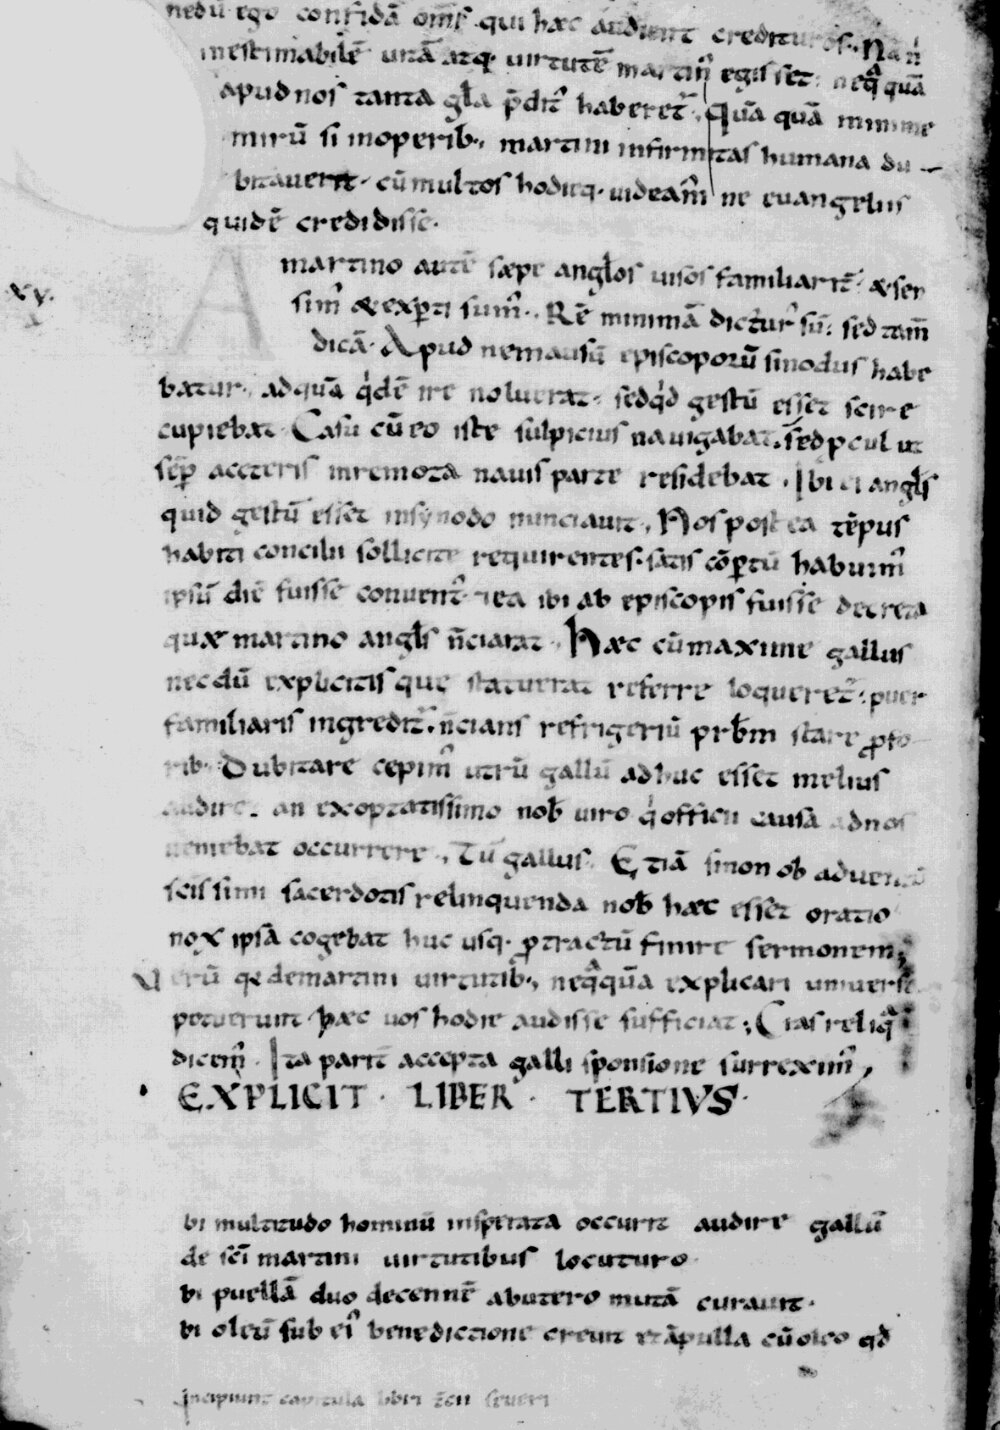 nedū ego confidā om̄s qui hæc audient credituros. Nā nı̓
inestimabilē uitā atq· uirtutē martini egisset: neq̄quā
apud nos tanta gl̄a p̄dit᷒ haberet᷒. Quā quā minime
mirū si inoperib·, martini infirmitas humana du-
bitauerit· cū multos hodieq· uideam᷒ ne euangeliis
quidē credidisse·
A martino autē sæpe angl̄os uisos familiarit̄· & ser
xv.
sim᷒ & exp̄ti sum᷒. Rē minimā dictur᷒ sū: sed tam̄
dicā· Apud nemausū episcoporū sinodus habe
batur· ad quā q̓dē ire noluerat· sed q̓d gestū esset scire
cupiebat· Casu cū eo iste sulpicius nauigabat. sed pcul ut
sēp acceteris inremota nauis parte residebat. Ibi ei angl̄s
quid gestū esset insynodo nunciauit. Nos postea tēpus
habiti concilii sollicite requirentes· satis cōp̄tū habuim᷒
ipsū diē fuisse conuent᷒· & ea ibi ab episcopis fuisse decreta
quæ martino angl̄s n̄ciarat. Hæc cū maxime gallus
necdū explicitis que statuerat referre loqueret᷒: puer
familiaris ingredit᷒. n̄cians refrigeriū prb̄m stare p̄ fo
rib· Dubitare cepim᷒ utrū gallū adhuc esset melius
audire· an exoptatissimo nob̄ uiro q̓ officii causā ad nos
ueniebat occurrere. Tū gallus. Etiā si non ob aduentū
scīssimi sacerdotis relinquenda nob̄ hæc esset oratio
nox ipsā cogebat huc usq· p̄tractū finire sermonem;
Verū qe demartini uirtutib·, neq̄quā explicari uniuersæ
potuerunt hæc uos hodie audisse sufficiat; Cras reliq̄
dicem᷒· Ita parit̄ accepta galli sponsione surrexim᷒,
EXPLICIT · LIBER · TERTIVS·
bi multitudo hominū insperata occurit audire gallū
de scī martini uirtutibus locuturo·
bi puellā duo decennē abutero mutā curauit·
bi oleū sub ei᷒ benedictione creuit et āpulla cū oleo qd̄
Incipiunt capitula libri t̄cii seueri